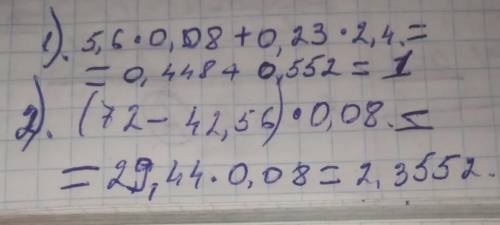 1). 5,6·0,08+0,23·2,4.=
=0,448+0,552=1
2). (72-42,56)·0,08.=
=29,44·0,08=2,3552.